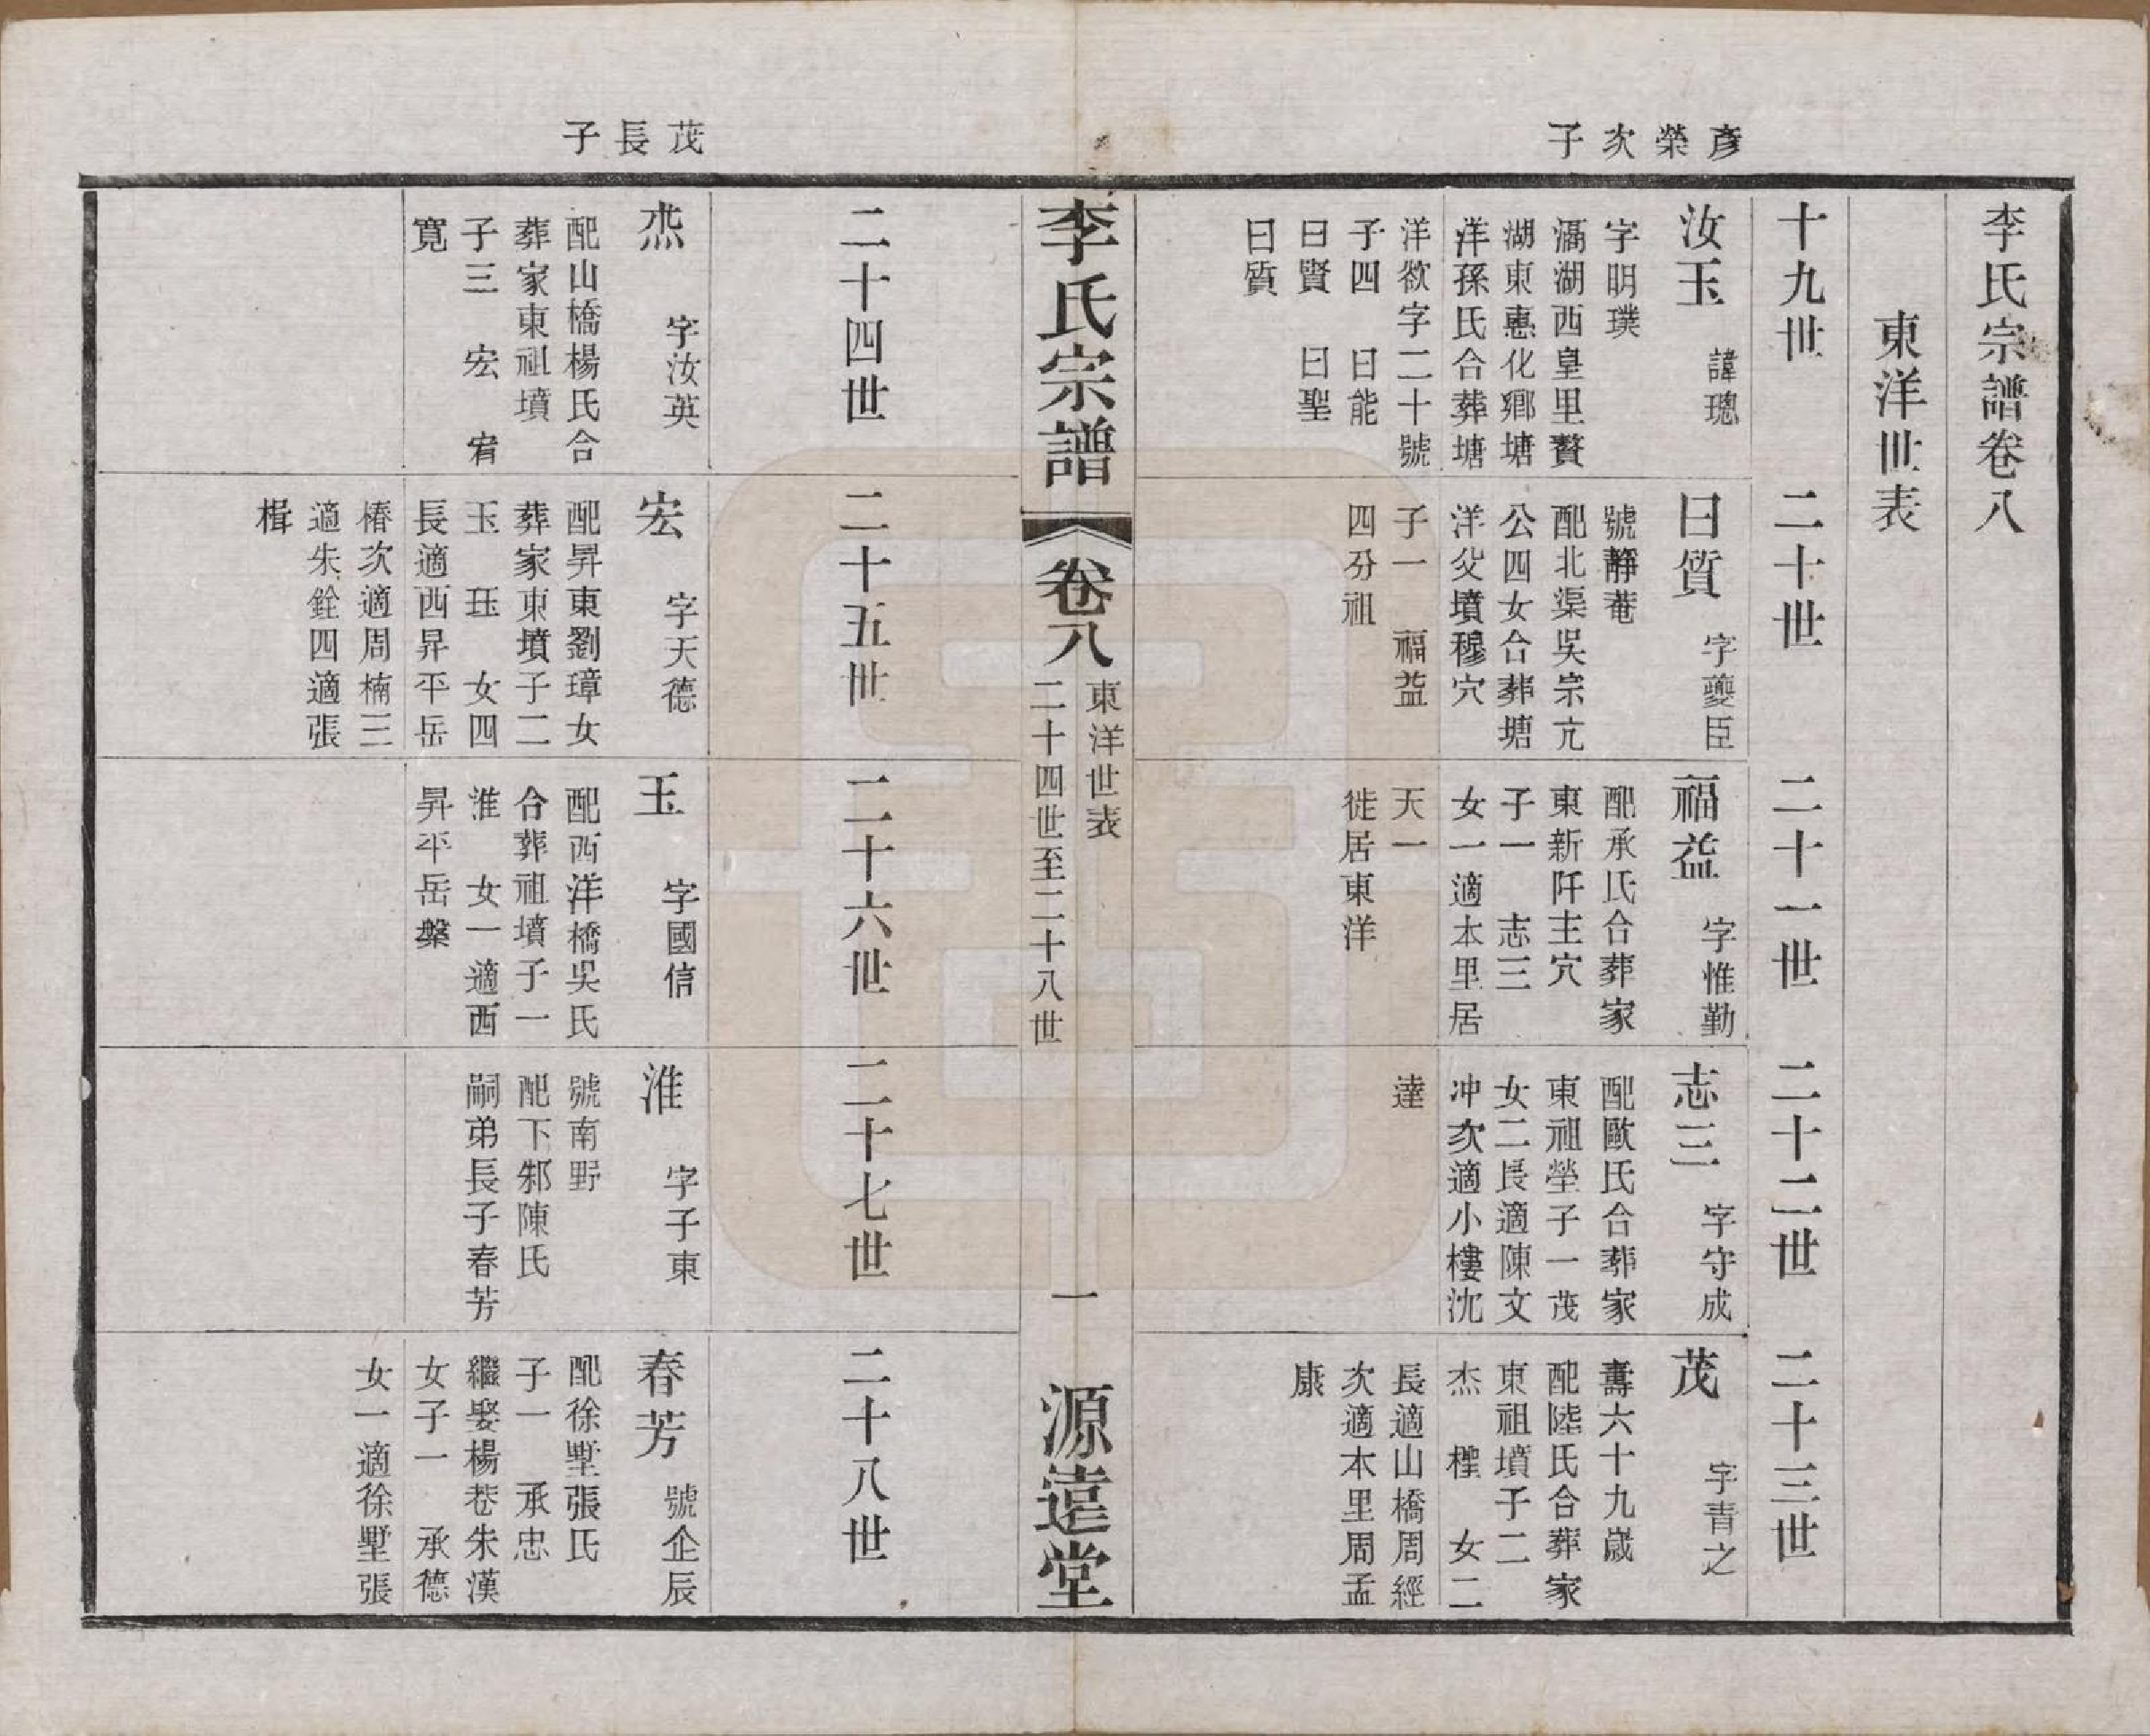 李氏宗譜卷八
東洋世表
彥榮次子
十九世
汝玉 諱璁
字明璞
滆湖西皇里贅
湖東惠化鄉塘
洋孫氏合葬塘
洋欲字二十號
子四 曰能
曰賢 曰聖
曰質
二十世
曰質 字夔臣
號靜菴
配北渠吳宗亢
公四女合葬塘
洋父墳穆穴
子一 福益
四分祖
二十一世
福益 字惟勤
配承氏合葬家
東新阡主穴
子一 志三
女一適本里居
天一
徙居東洋
二十二世
志三 字守成
配歐氏合葬家
東祖塋子一茂
女二長適陳文
冲次適小樓沈
達
二十三世
茂 字青之
壽六十九歲
配陸氏合葬家
東祖墳子二
杰 檉 女二
長適山橋周經
次適本里周孟
康
李氏宗譜 卷八 東洋世表
二十四世至二十八世
一 源遠堂
茂長子
二十四世
杰 字汝英
配山橋楊氏合
葬家東祖墳
子三 宏 宥
寬
二十五世
宏 字天德
配昇東劉璋女
葬家東墳子二
玉 玨 女四
長適西昇平岳
椿次適周楠三
適朱銓四適張
楫
二十六世
玉 字國信
配西洋橋吳氏
合葬祖墳子一
淮 女一適西
昇平岳槃
二十七世
淮 字子東
號南野
配下邾陳氏
嗣弟長子春芳
二十八世
春芳 號企辰
配徐墅張氏
子一 承忠
繼娶楊巷朱漢
女子一 承德
女一適徐墅張